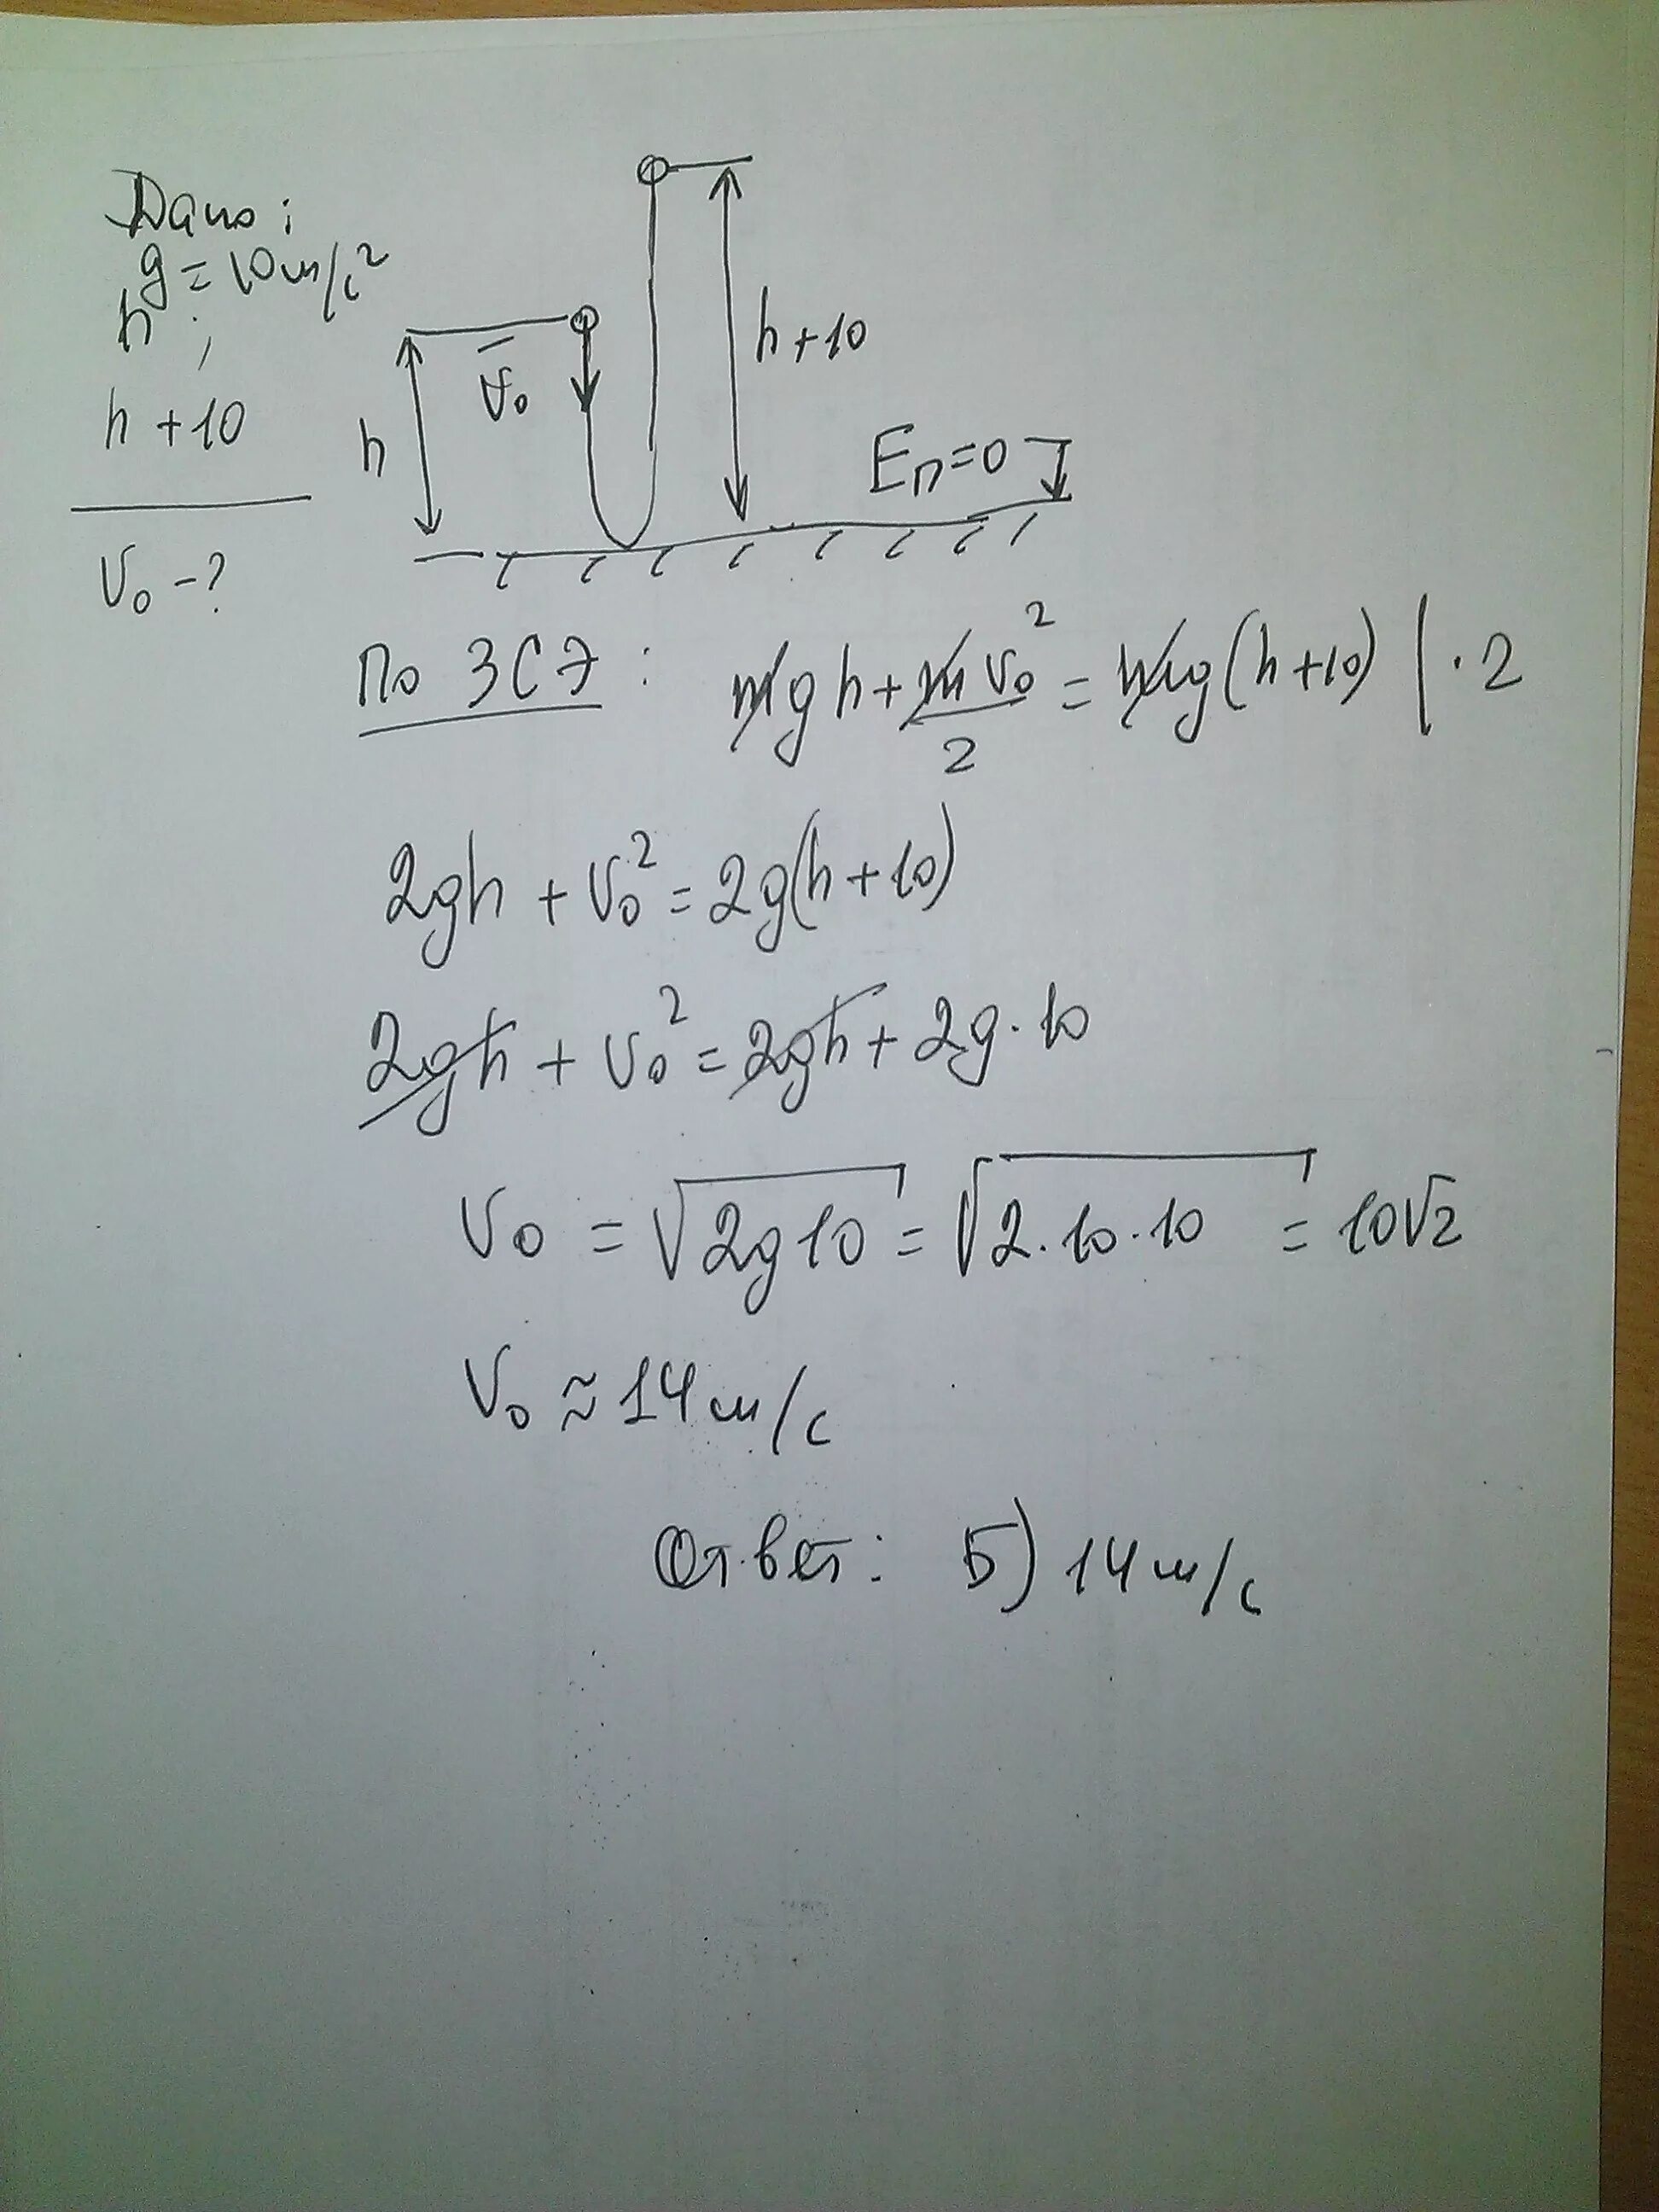 Дано:
g = 10 м/с²
h;
h + 10
V₀ - ?
h
V̄₀
h + 10
Eп = 0
По ЗСЭ: mgh + mV₀²/2 = mg(h + 10) | · 2
2gh + V₀² = 2g(h + 10)
2gh + V₀² = 2gh + 2g · 10
V₀ = √2g10 = √2 · 10 · 10 = 10√2
V₀ ≈ 14 м/с
Ответ: Б) 14 м/с